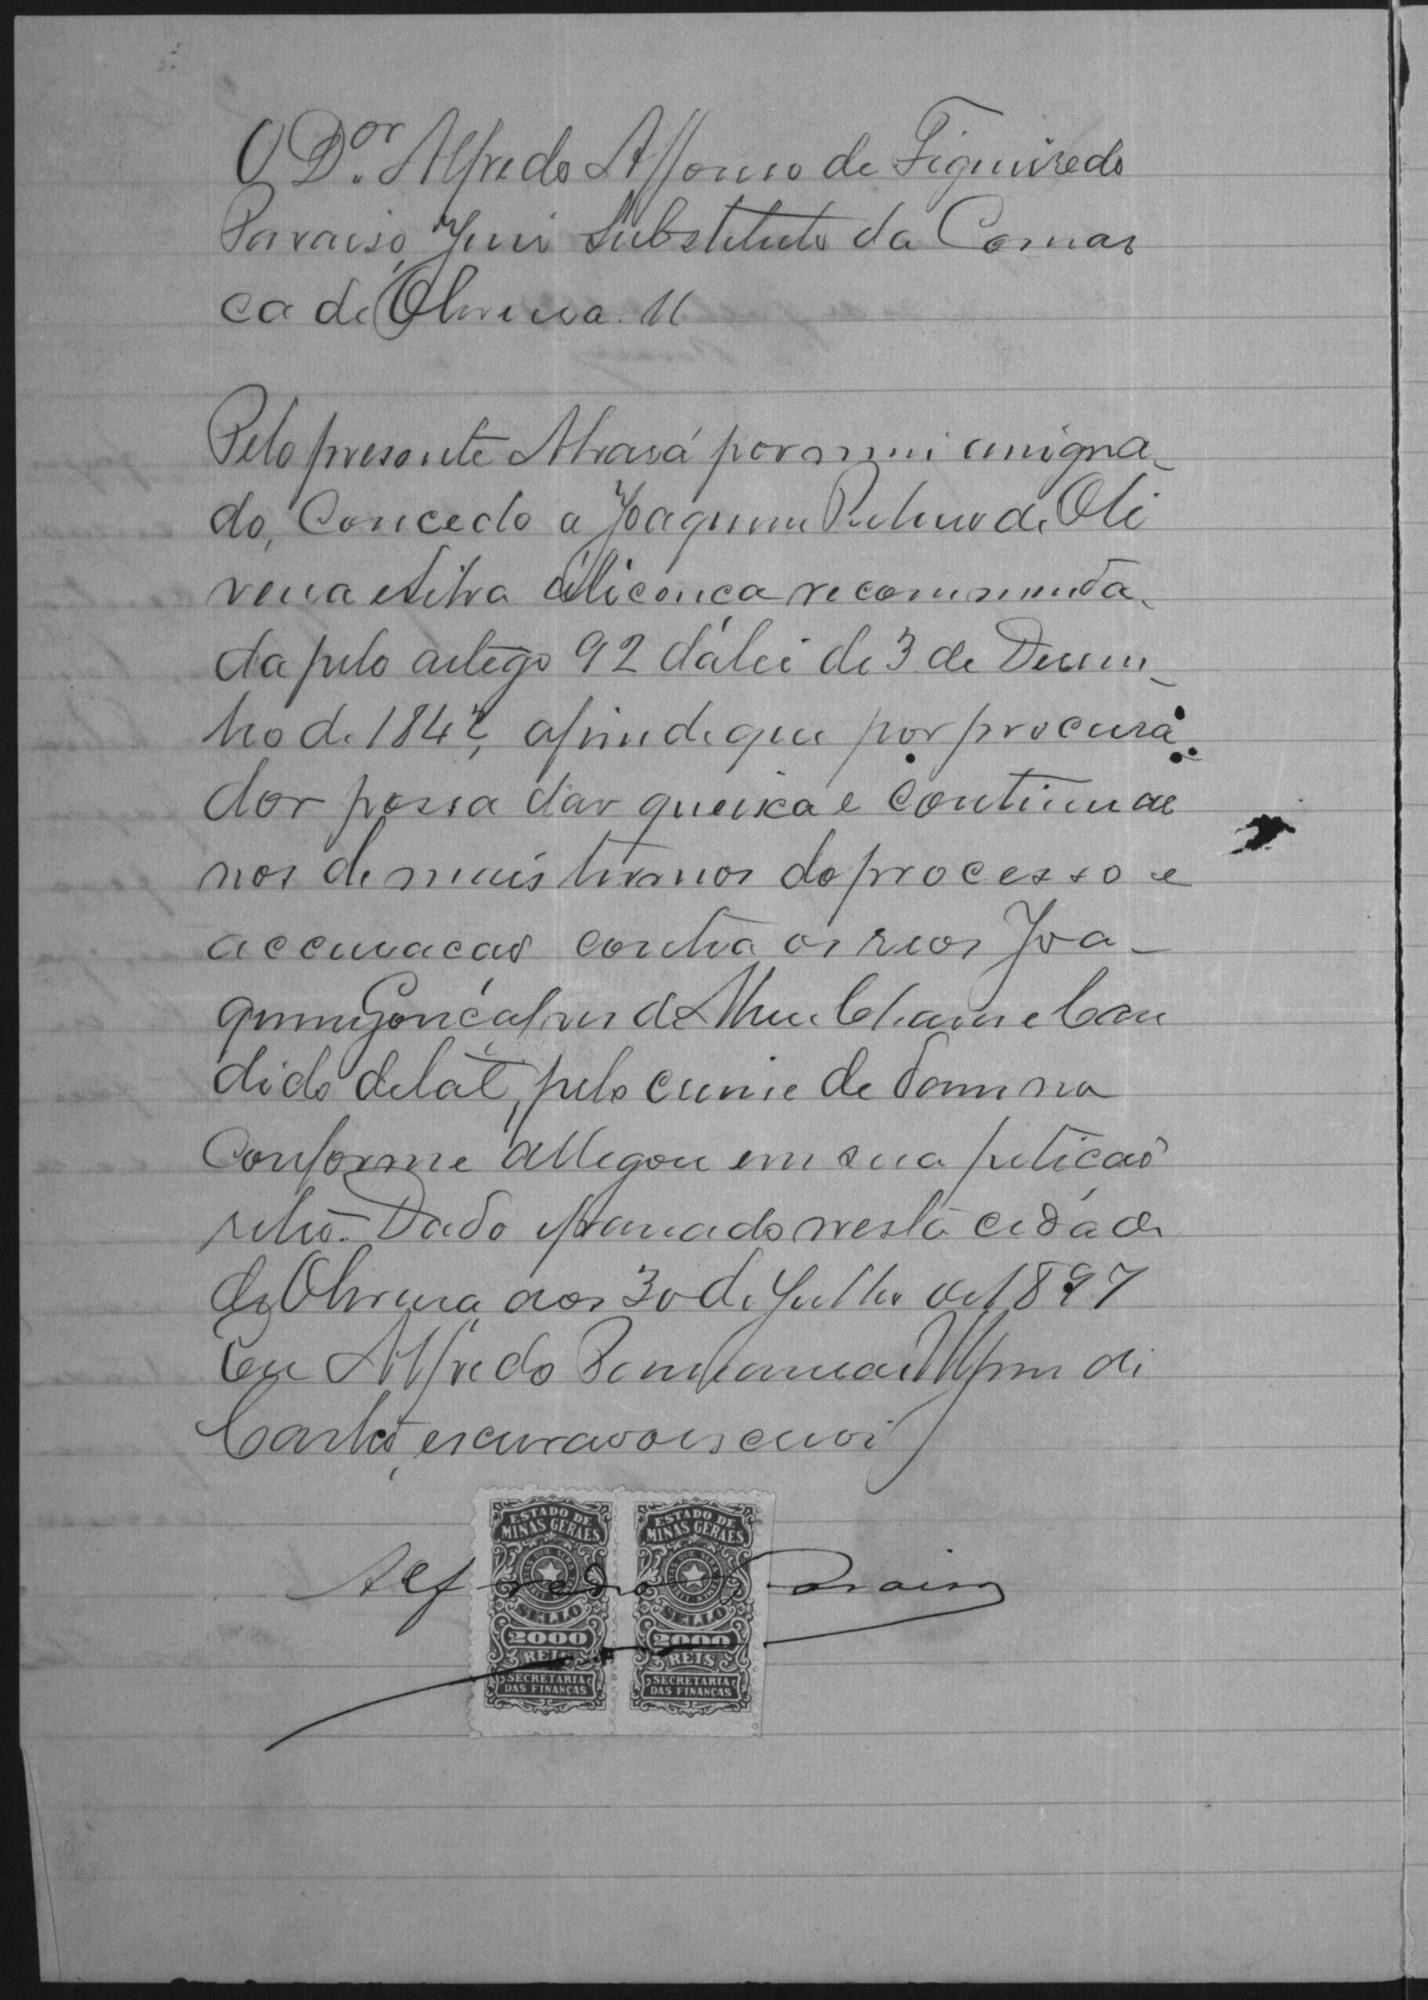 O Dor. Alfredo Affonso de Figueiredo
Paraiso, Juis Substituto da Comar
ca de Oliveira. &
Pelo presente Alvará por mim assigna-
do, Concedo a Joaquim Ribeiro de Oli
veira e Silva a licença recommenda-
da pelo artigo 92 da lei de 3 de Dezem-
bro de 1842, afim de que por procura
dor possa dar queixa e continuar
nos de mais termos do processo e
accusação contra os reos Joa-
quim Gonçalves de e Can
dido de tal, pelo crime de damno
Conforme allegou em sua petição
retro. Dado e passado nesta cidade
de Oliveira, aos 30 de Julho de 1897
Eu Alfredo de
Castro, escrivão o escrevi
Alfredo Paraiso
ESTADO DE MINAS GERAES
SELLO
2000
REIS
SECRETARIA DAS FINANÇAS
ESTADO DE MINAS GERAES
SELLO
2000
REIS
SECRETARIA DAS FINANÇAS